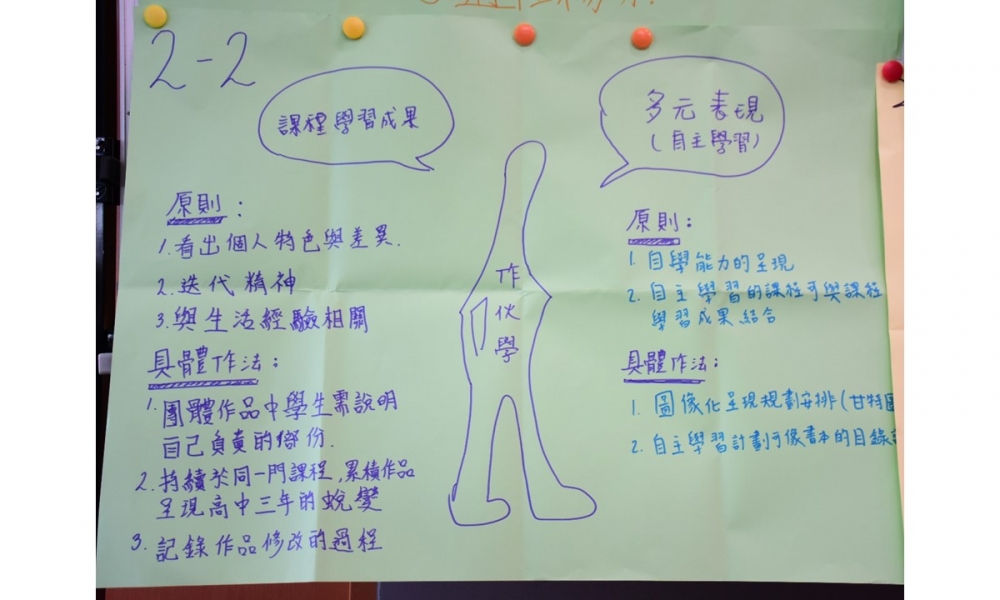 2-2
課程學習成果
原則：
1.看出個人特色與差異.
2.迭代精神
3.與生活經驗相關
具體作法：
1.團體作品中學生需說明
自己負責的部份.
2.持續於同一門課程,累積作品
呈現高中三年的蛻變
3.記錄作品修改的過程
作伙學
多元表現
(自主學習)
原則：
1.自學能力的呈現
2.自主學習的課程可與課程
學習成果結合
具體作法：
1.圖像化呈現規劃安排(甘特圖
2.自主學習計劃可像書本的目錄